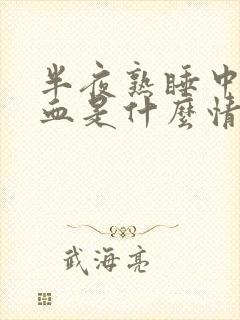 半夜熟睡中
血是什麼情
武海亮